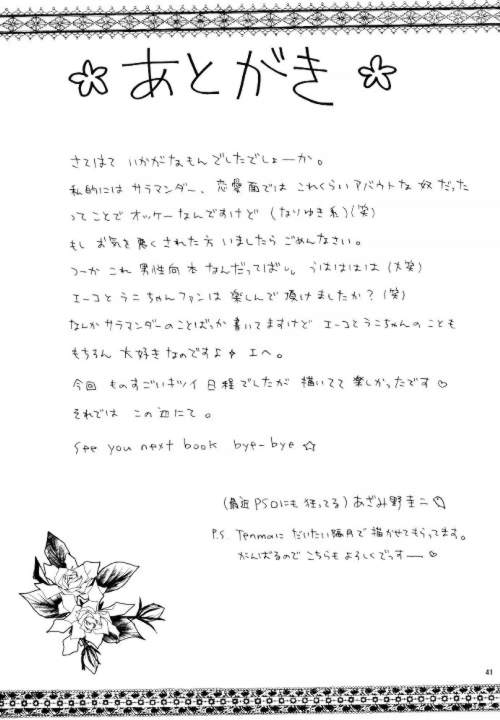 あとがき
さてはて いかがなもんでしたでしょーか。
私的には サラマンダー、恋愛面では これくらい アバウトな 奴だった
ってことで オッケーなんですけど (なりゆき系)(笑)
もし お気を悪くされた方 いましたら ごめんなさい。
つーか これ 男性向本 なんだってばし。うはははは (大笑)
エーコとラニちゃんファンは 楽しんで 頂けましたか?(笑)
なんか サラマンダーのことばっか 書いてますけど エーコとラニちゃんのことも
もちろん 大好きなのですよ エへ。
今回 ものすごいキツイ 日程でしたが 描いてて 楽しかったです♡
それでは この辺にて。
See you next book bye-bye ☆
(最近 PSOにも 狂ってる) あざみ野圭二
P.S. Tenmaに だいたい隔月で 描かせてもらってます。
がんばるので こちらも よろしくでっすー ♡
41